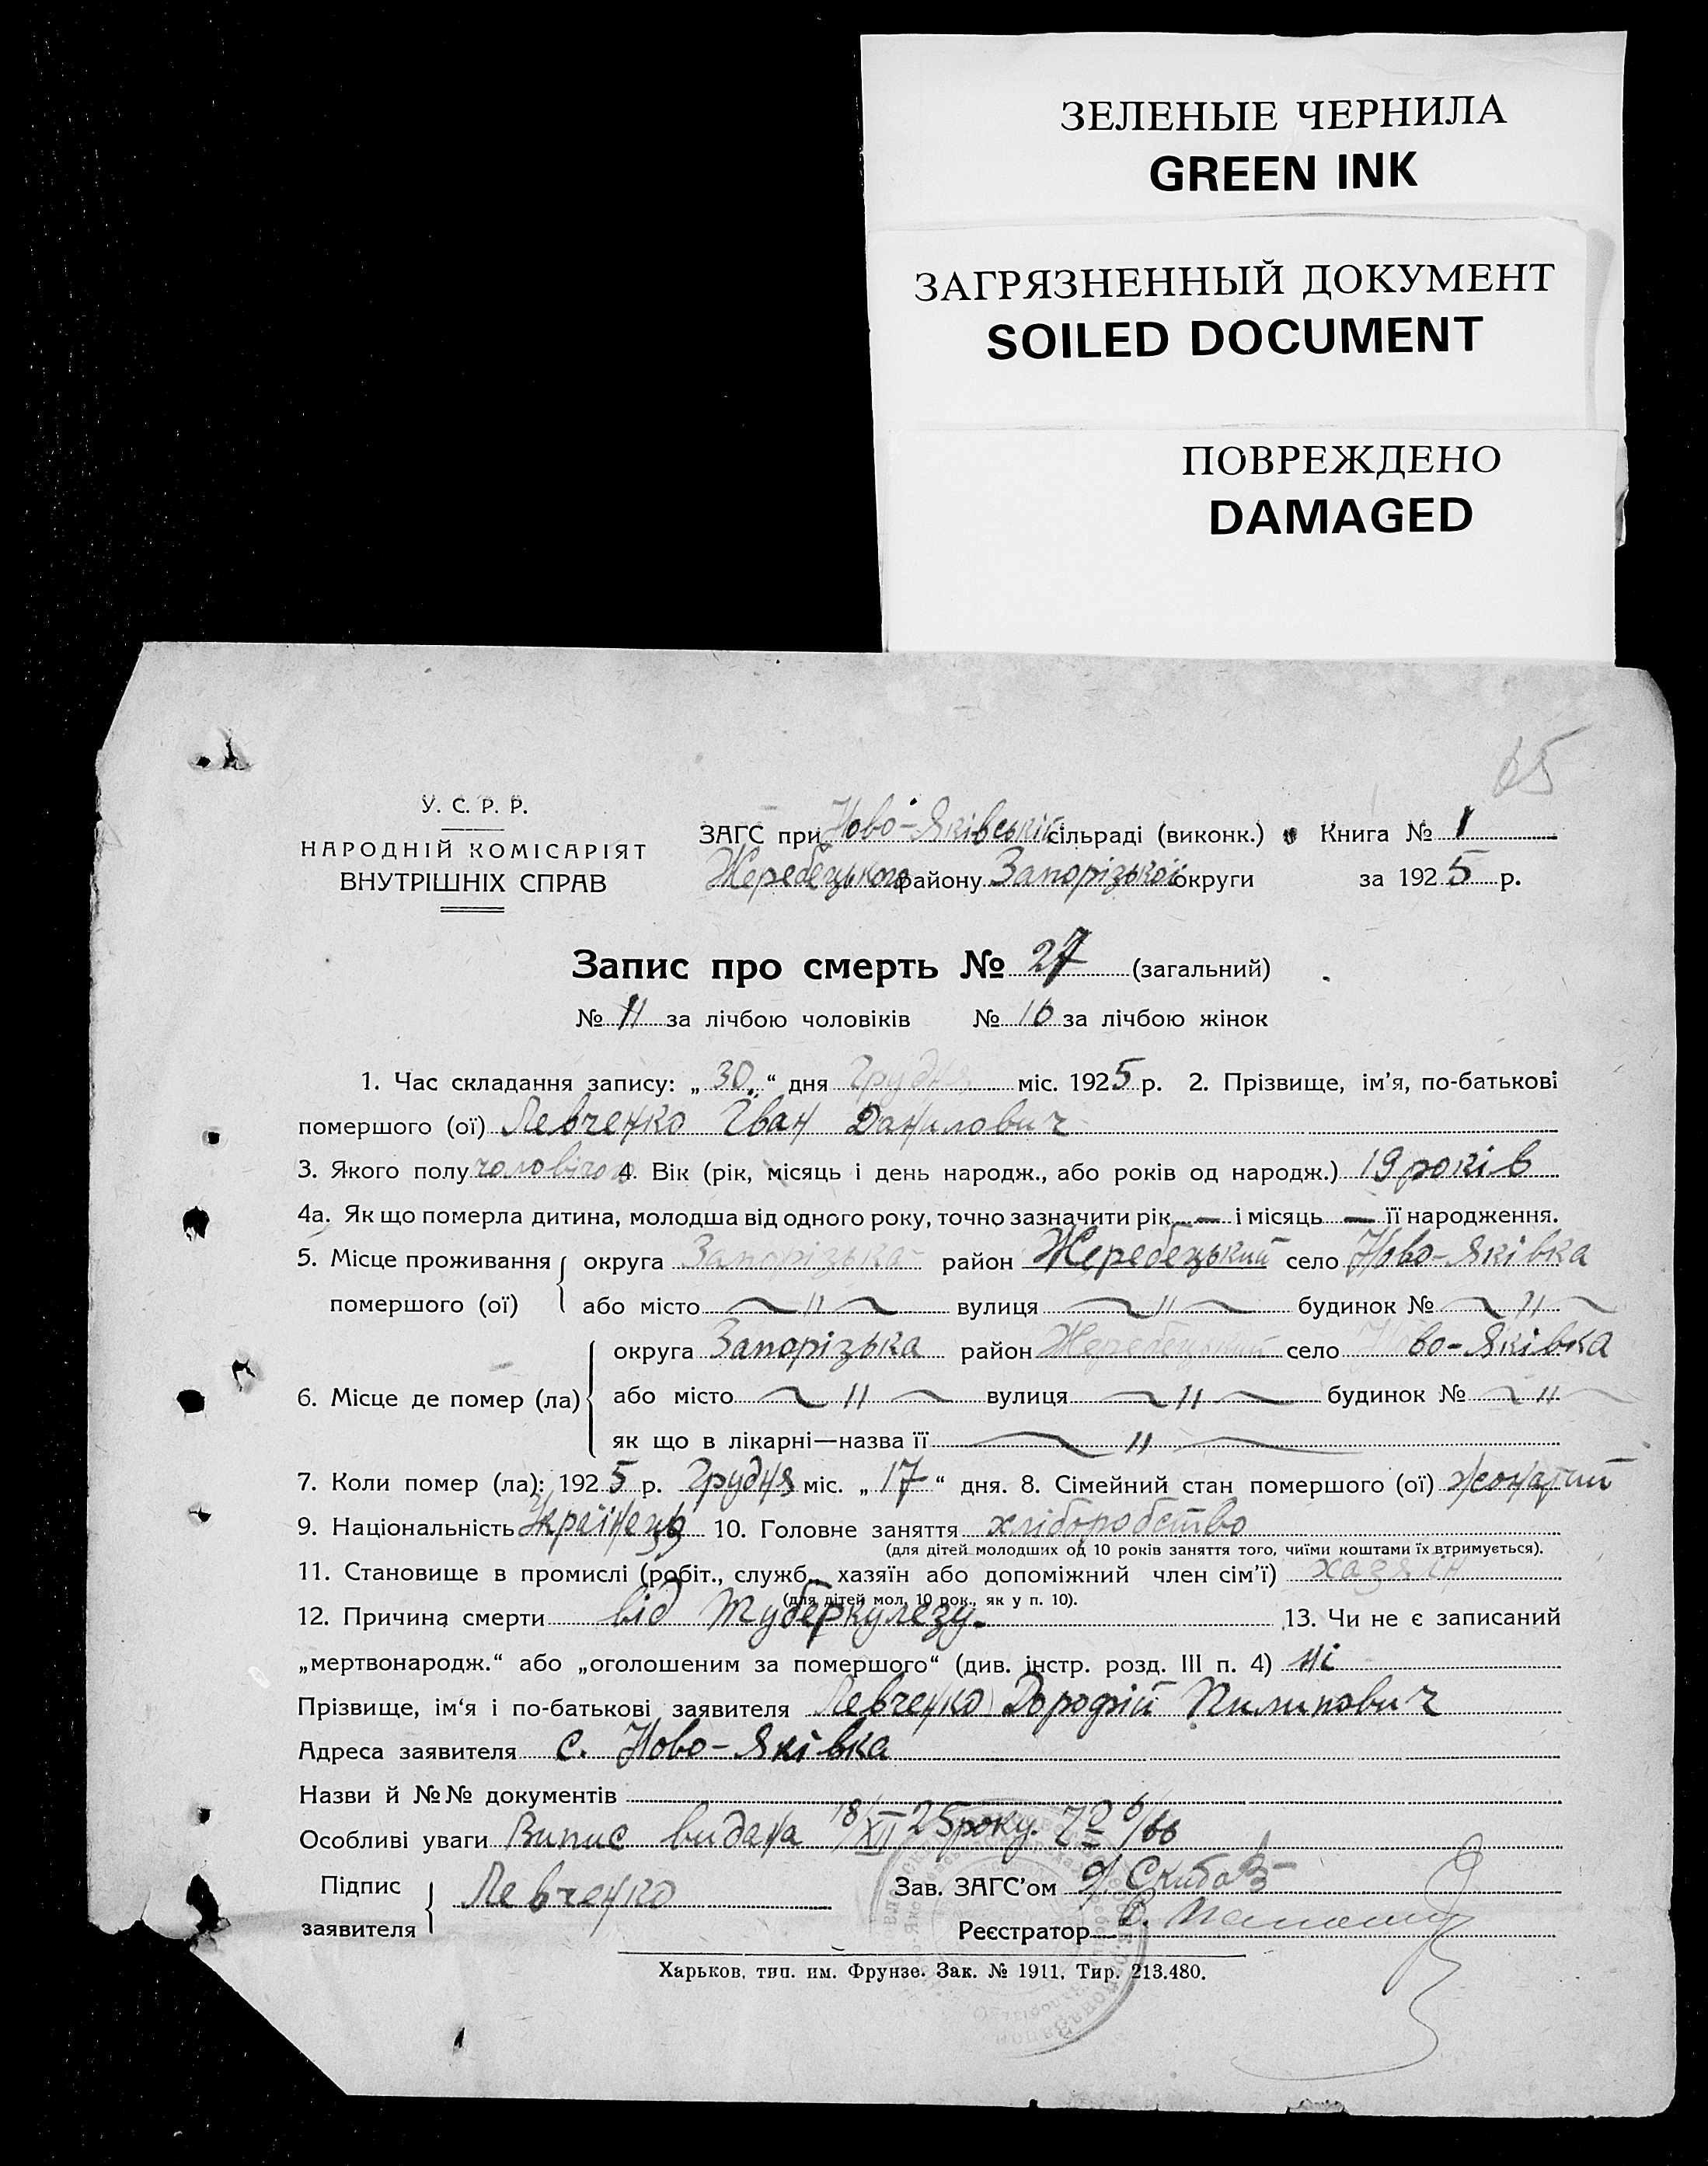 ЗЕЛЕНЫЕ ЧЕРНИЛА
GREEN INK
ЗАГРЯЗНЕННЫЙ ДОКУМЕНТ
SOILED DOCUMENT
ПОВРЕЖДЕНО
DAMAGED
65
У. С. Р. Р.
НАРОДНІЙ КОМІСАРІЯТ
ВНУТРІШНІХ СПРАВ
ЗАГС при Ново-Яківській сільраді (виконк.) Книга № 1
Жеребецького району Запорізької округи за 1925 р.
Запис про смерть № 27 (загальний)
№ 11 за лічбою чоловіків № 16 за лічбою жінок
1. Час складання запису: „30“ дня Грудня міс. 1925 р. 2. Прізвище, ім'я, по-батькові
помершого (ої) Левченко Іван Данилович
3. Якого полу чоловічого 4. Вік (рік, місяць і день народж., або років од народж.) 19 років
4а. Як що померла дитина, молодша від одного року, точно зазначити рік — і місяць — її народження.
5. Місце проживання помершого (ої) округа Запорізька район Жеребецький село Ново-Яківка
або місто ~ " ~ вулиця ~ " ~ будинок № ~ " ~
6. Місце де помер (ла) округа Запорізька район Жеребецький село Ново-Яківка
або місто ~ " ~ вулиця ~ " ~ будинок № ~ " ~
як що в лікарні—назва її ~ " ~
7. Коли помер (ла): 1925 р. Грудня міс. „17“ дня. 8. Сімейний стан помершого (ої) жонатий
9. Національність Українець 10. Головне заняття хліборобство
(для дітей молодших од 10 років заняття того, чиїми коштами їх втримується).
11. Становище в промислі (робіт., служб., хазяїн або допоміжний член сім'ї) хазяїн
(для дітей мол. 10 рок., як у п. 10).
12. Причина смерти від туберкулезу. 13. Чи не є записаний
„мертвонародж.“ або „оголошеним за помершого“ (див. інстр. розд. III п. 4) ні
Прізвище, ім'я і по-батькові заявителя Левченко Дорофій Пилипович
Адреса заявителя с. Ново-Яківка
Назви й №№ документів
Особливі уваги Випис видана 18/XII 25 року
Підпис заявителя Левченко
Зав. ЗАГС'ом Скиба
Реєстратор
Харьков, тип. им. Фрунзе. Зак. № 1911. Тир. 213.480.